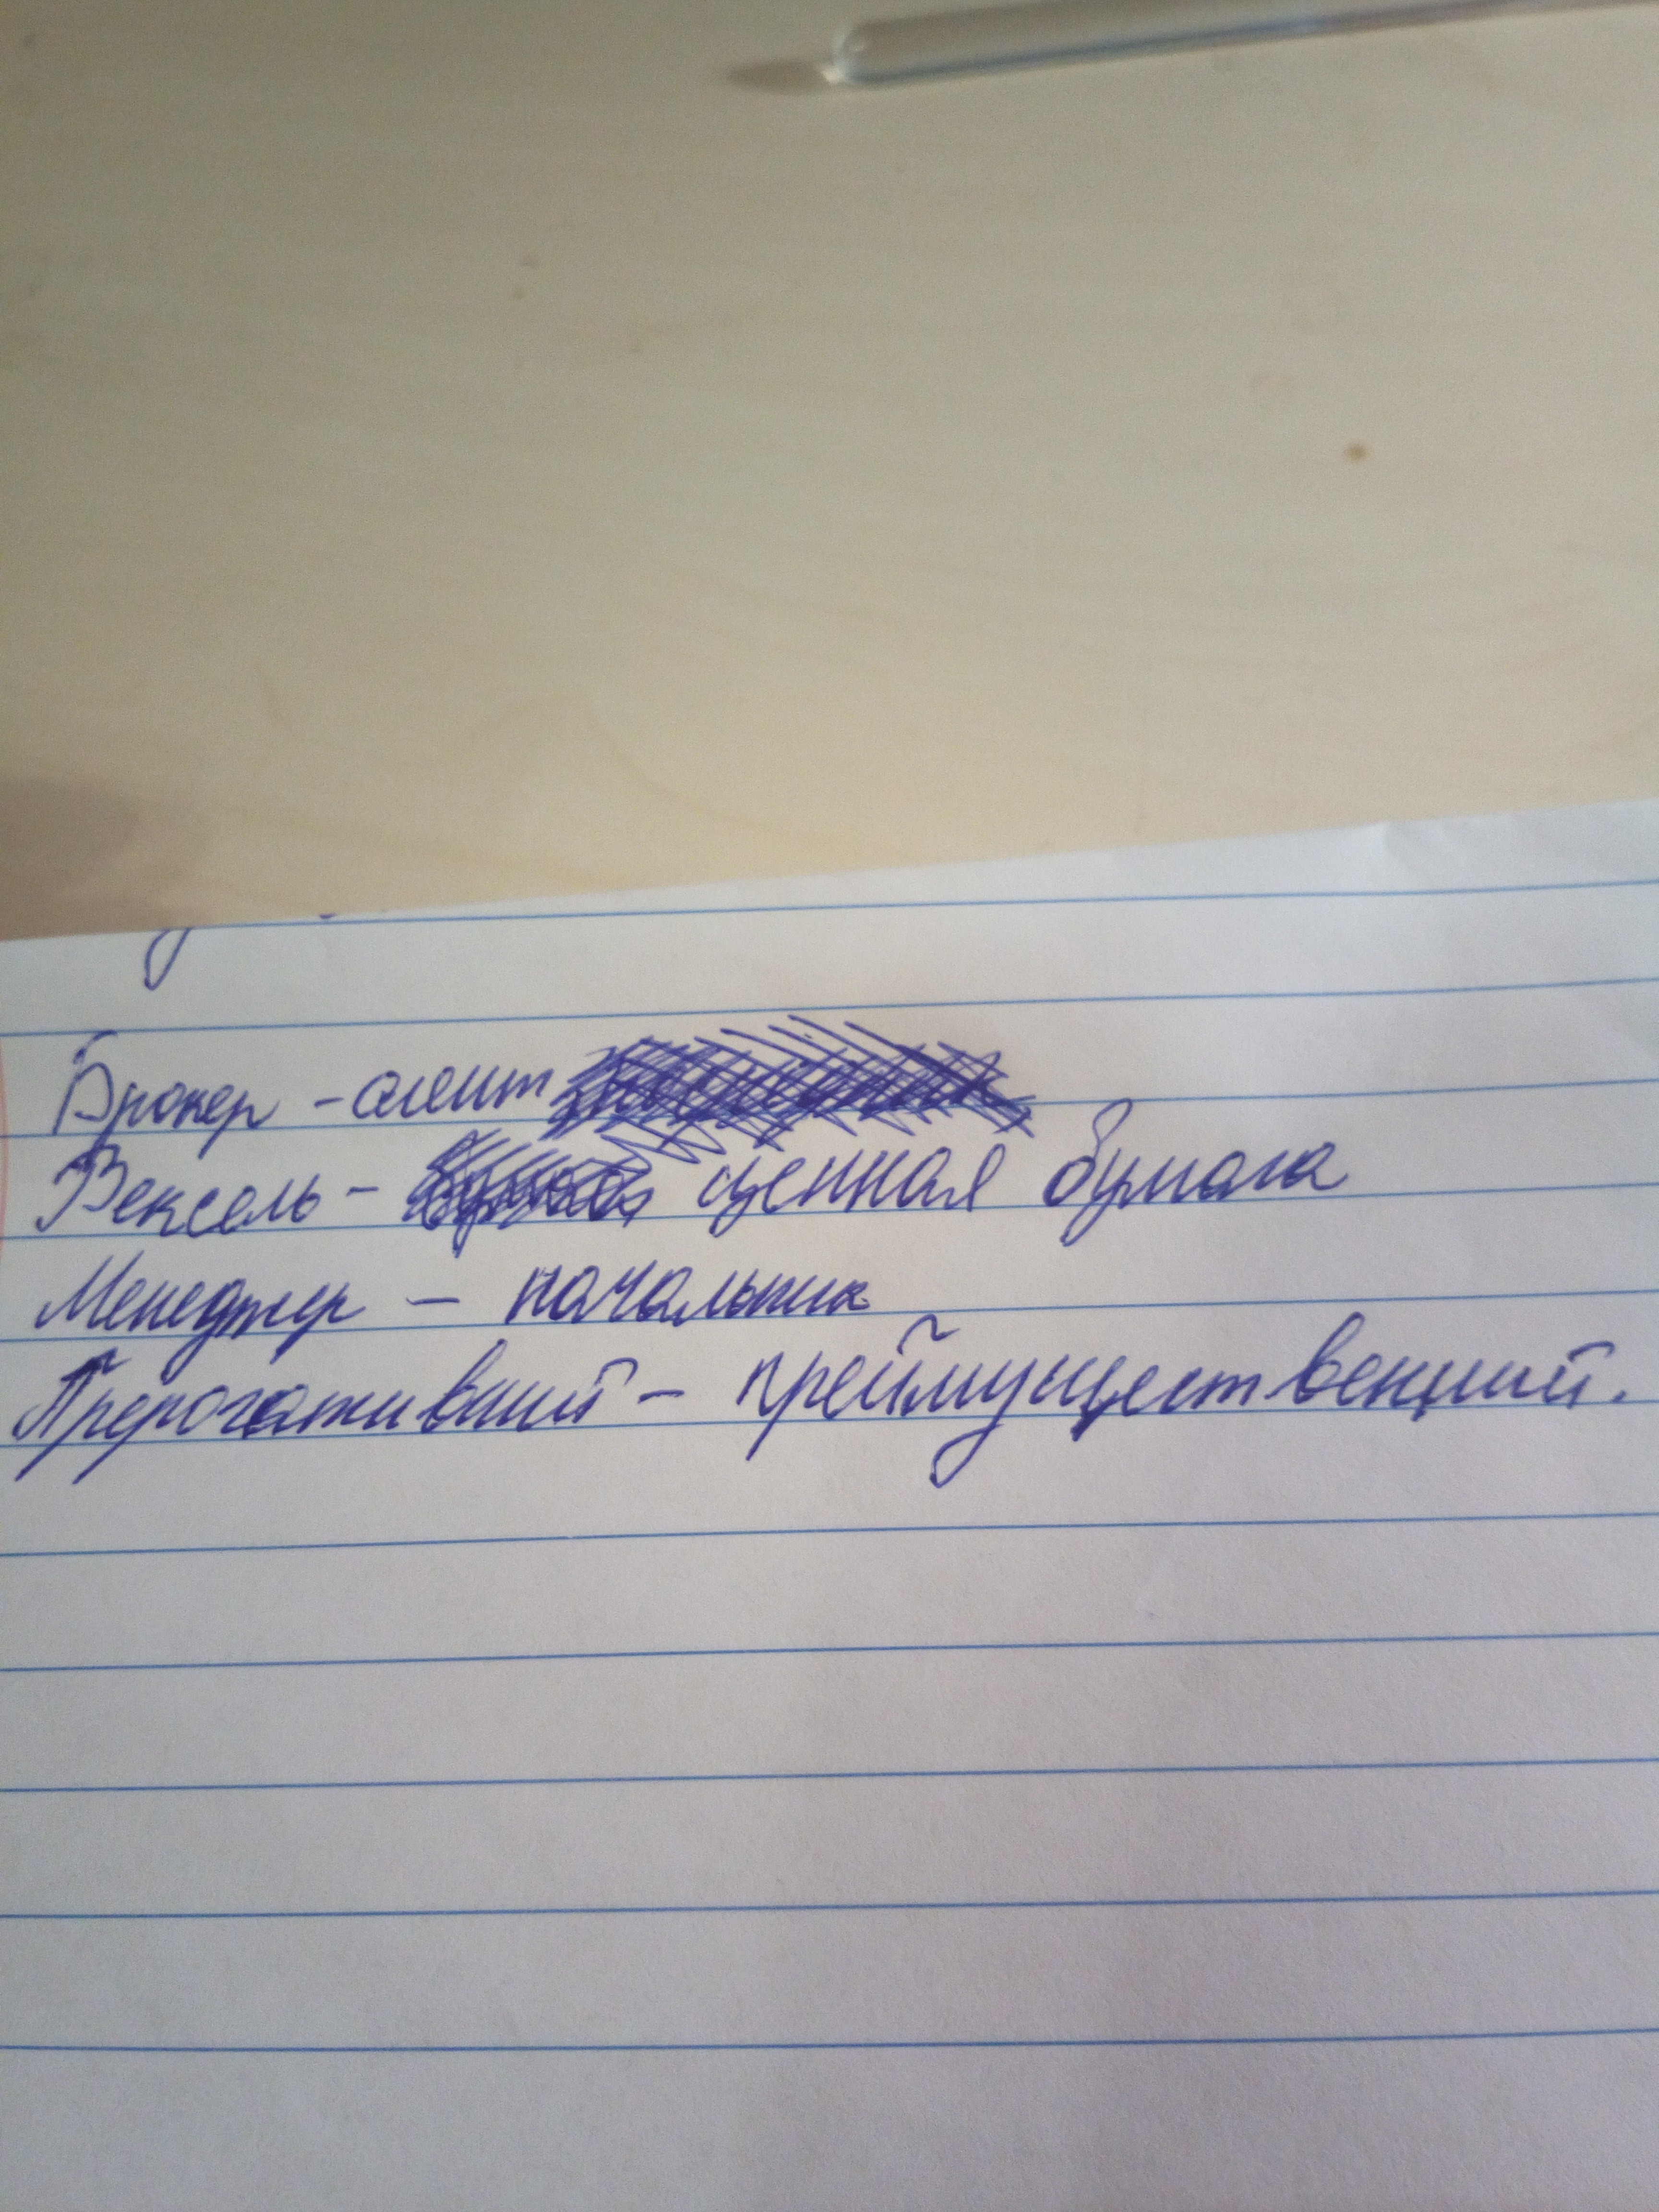 Брокер - агент
Вексель - ценная бумага
Менеджер - начальник
Прерогативний - преймущественний.